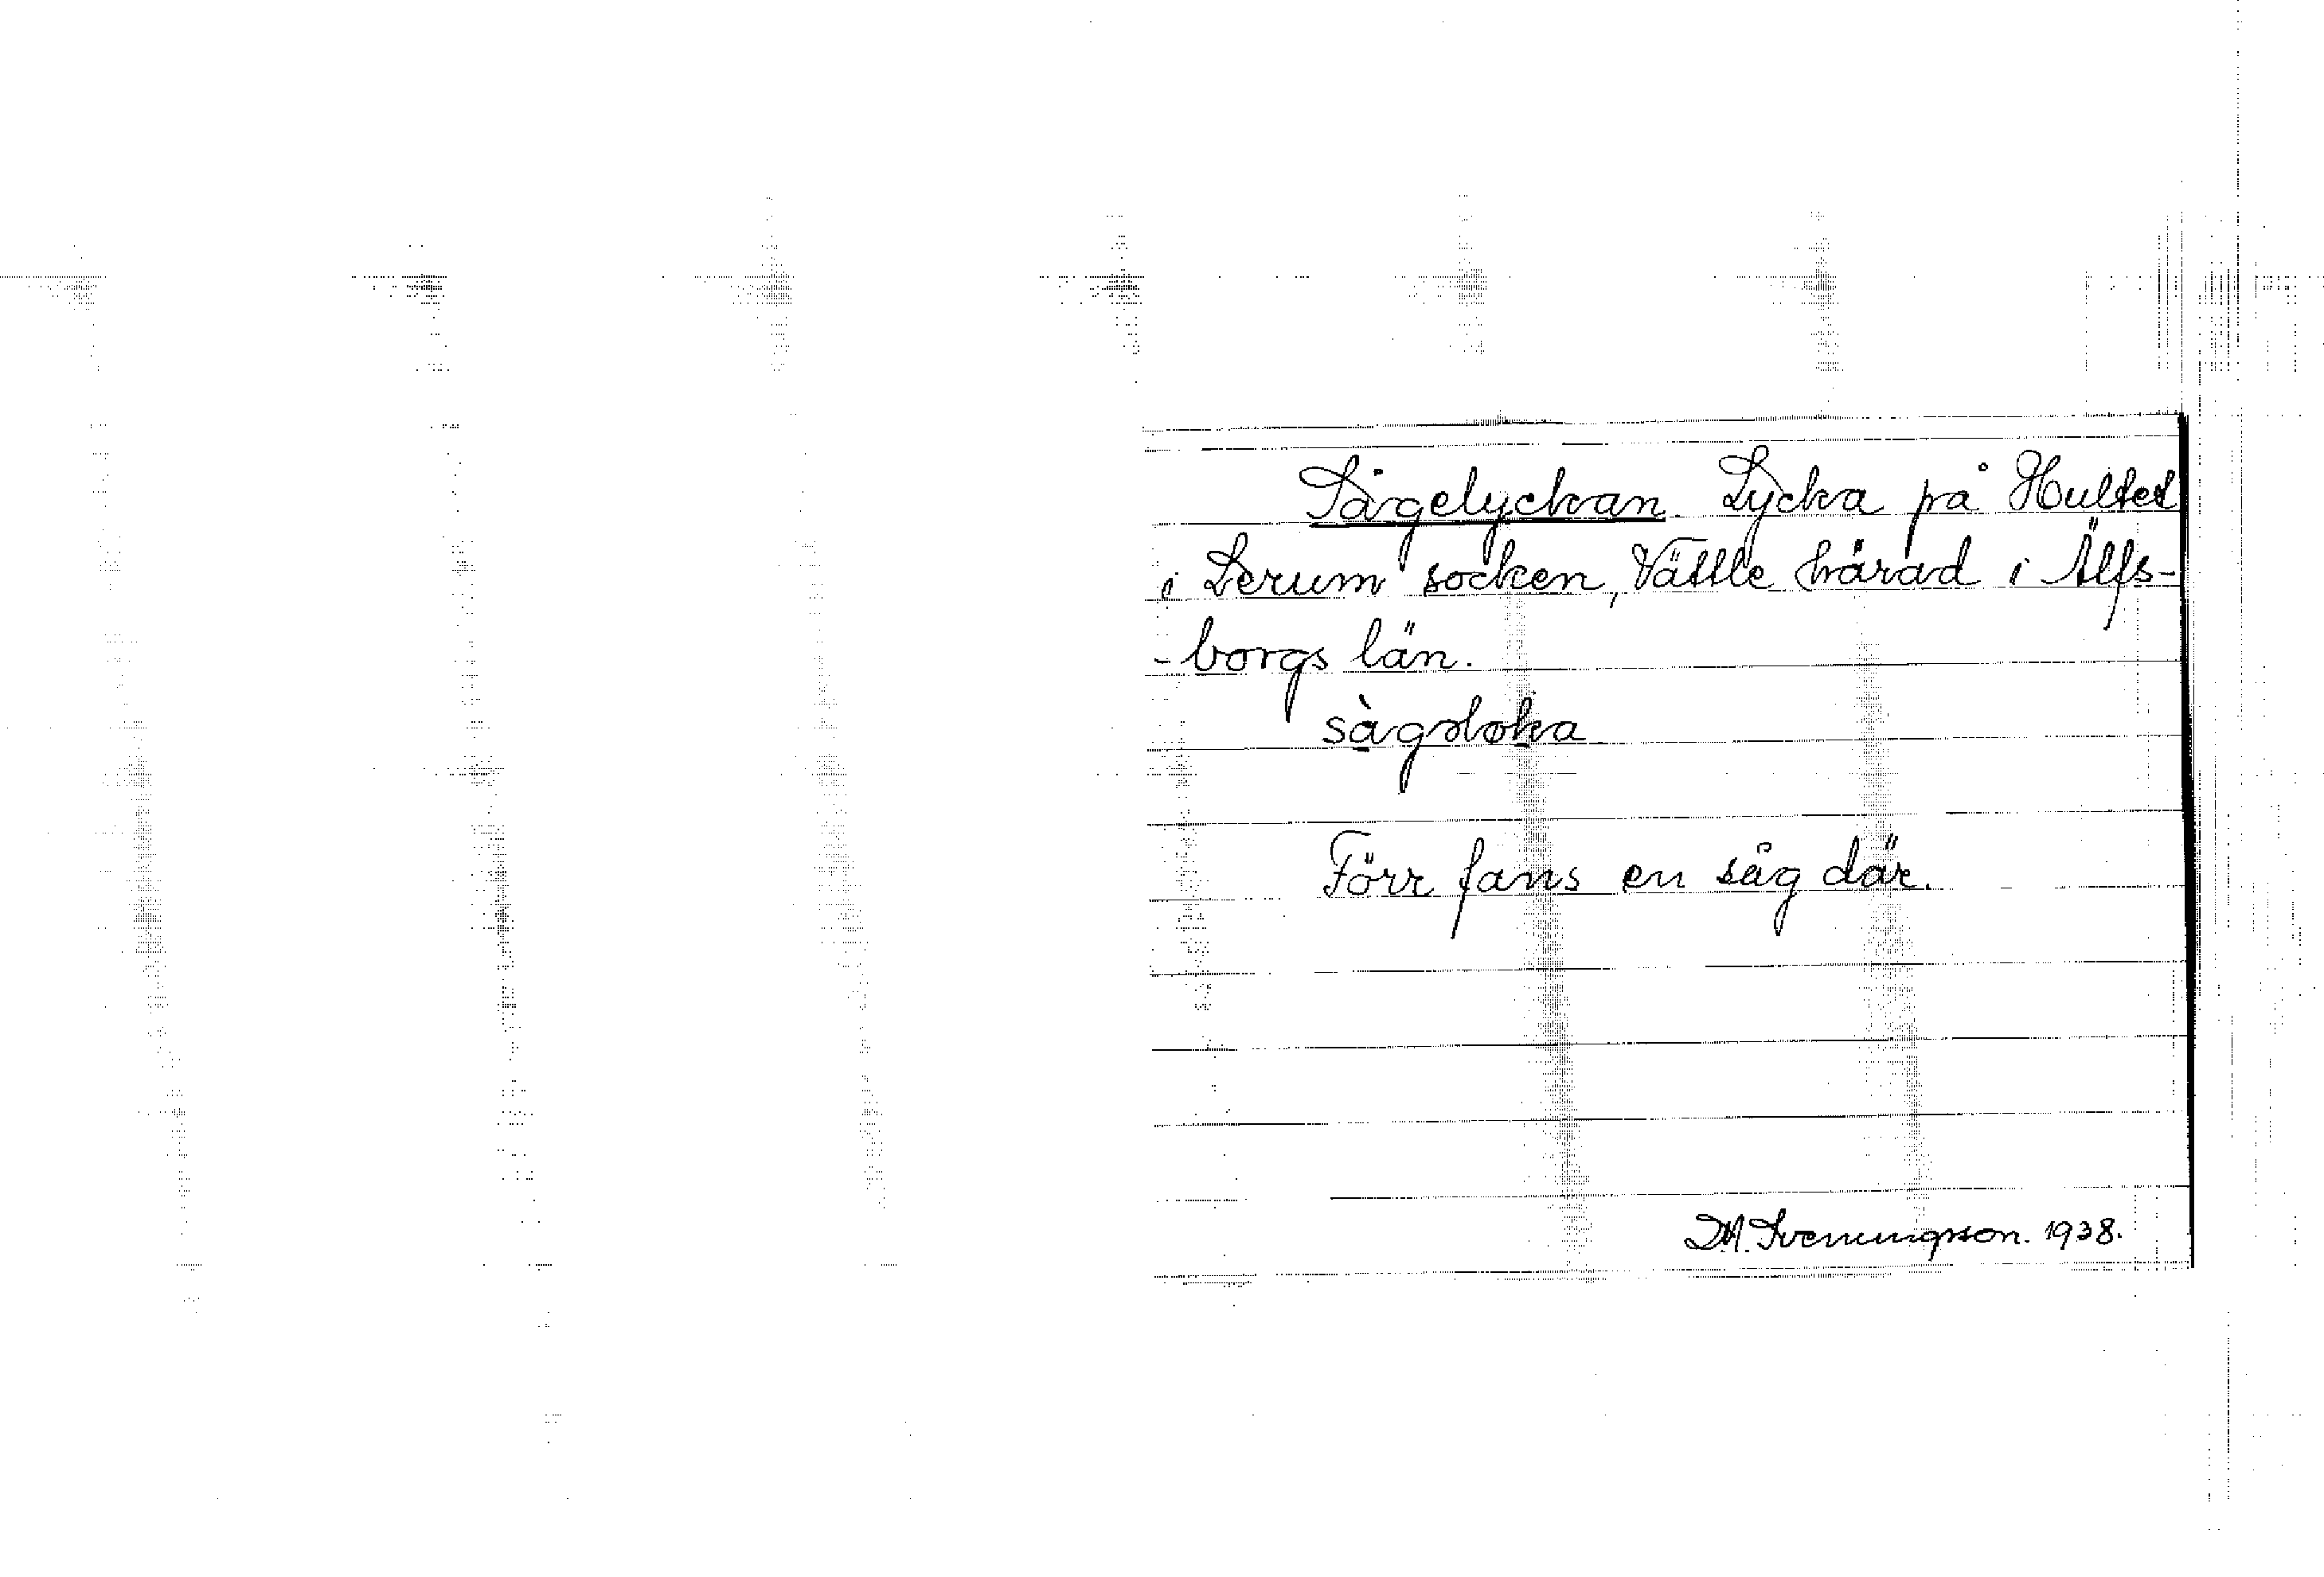 Sågelyckan. Lycka på Hultet
i Lerum socken, Vättle härad i Älfs-
-borgs län.
sågəloka
Förr fans en såg där.
D.A. Svenningsson. 1938.